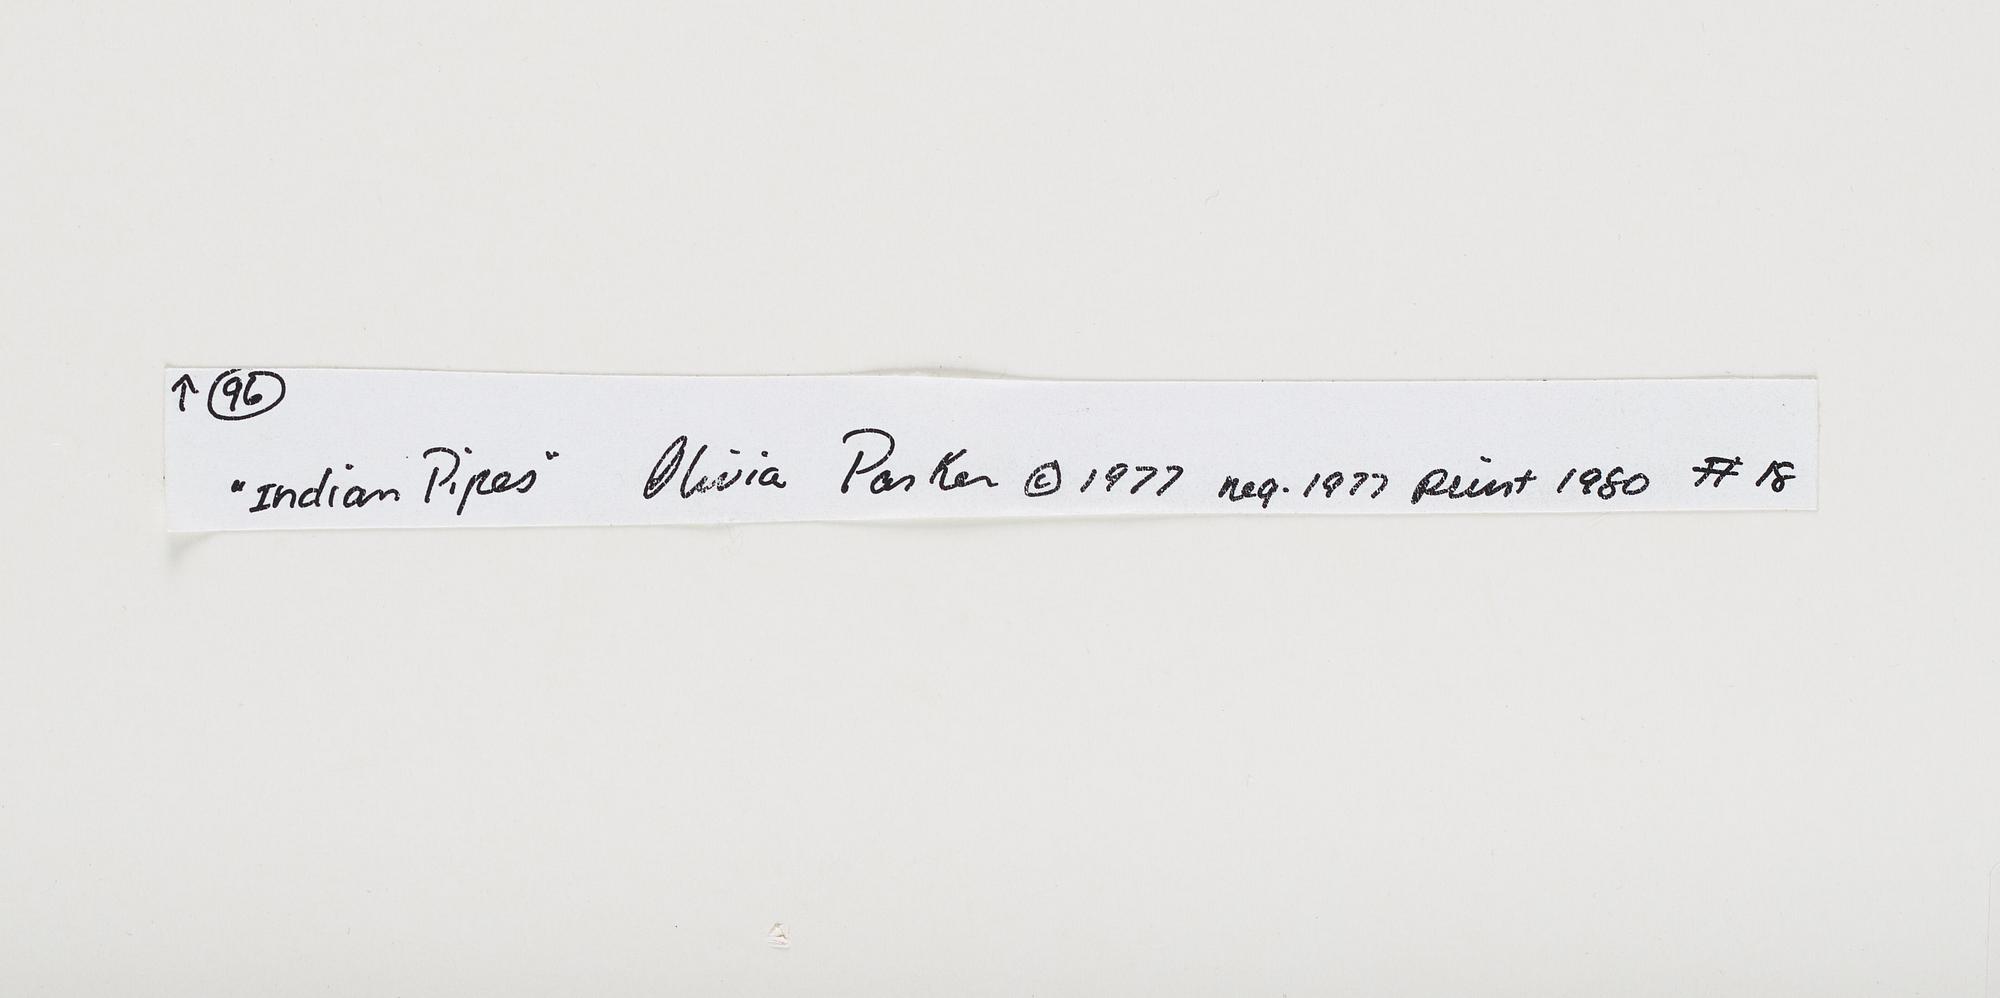 ↑ 96
"Indian Pipes" Olivia Parker © 1977 neg. 1977 print 1980 # 18